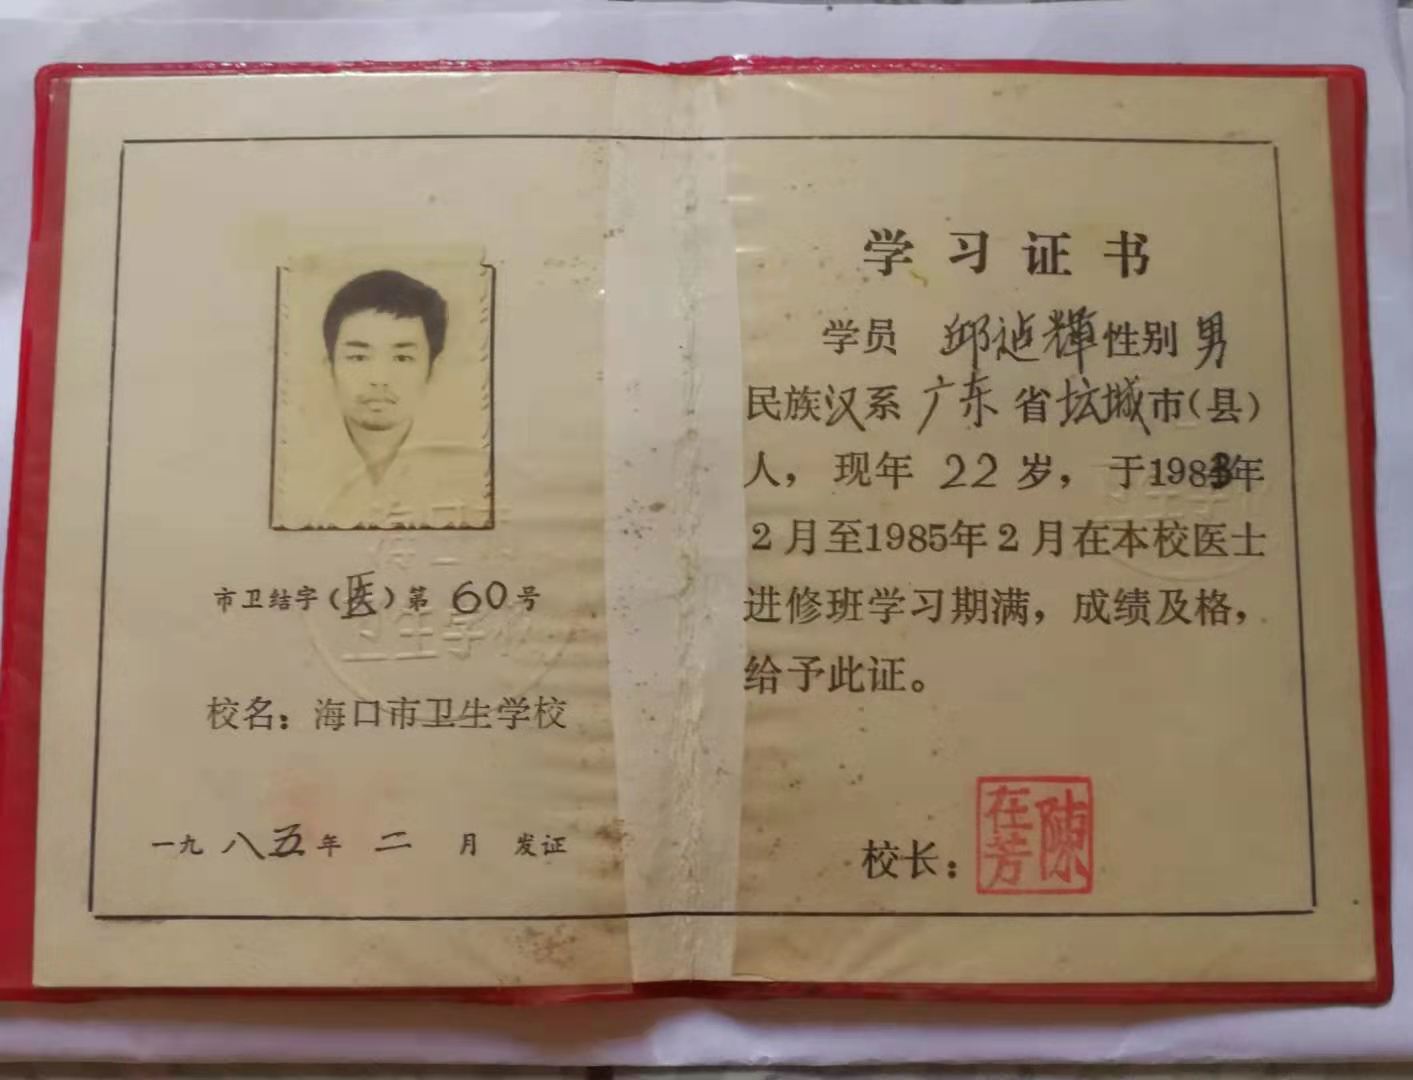 市卫结字（医）第 60 号
校名：海口市卫生学校
一九八五年 二 月 发证
学习证书
学员 邱 輝 性别 男
民族汉系 广东 省 坛城 市（县）
人，现年 22 岁，于1983年
2月至1985年2月在本校医士
进修班学习期满，成绩及格，
给予此证。
校长：陳在芳